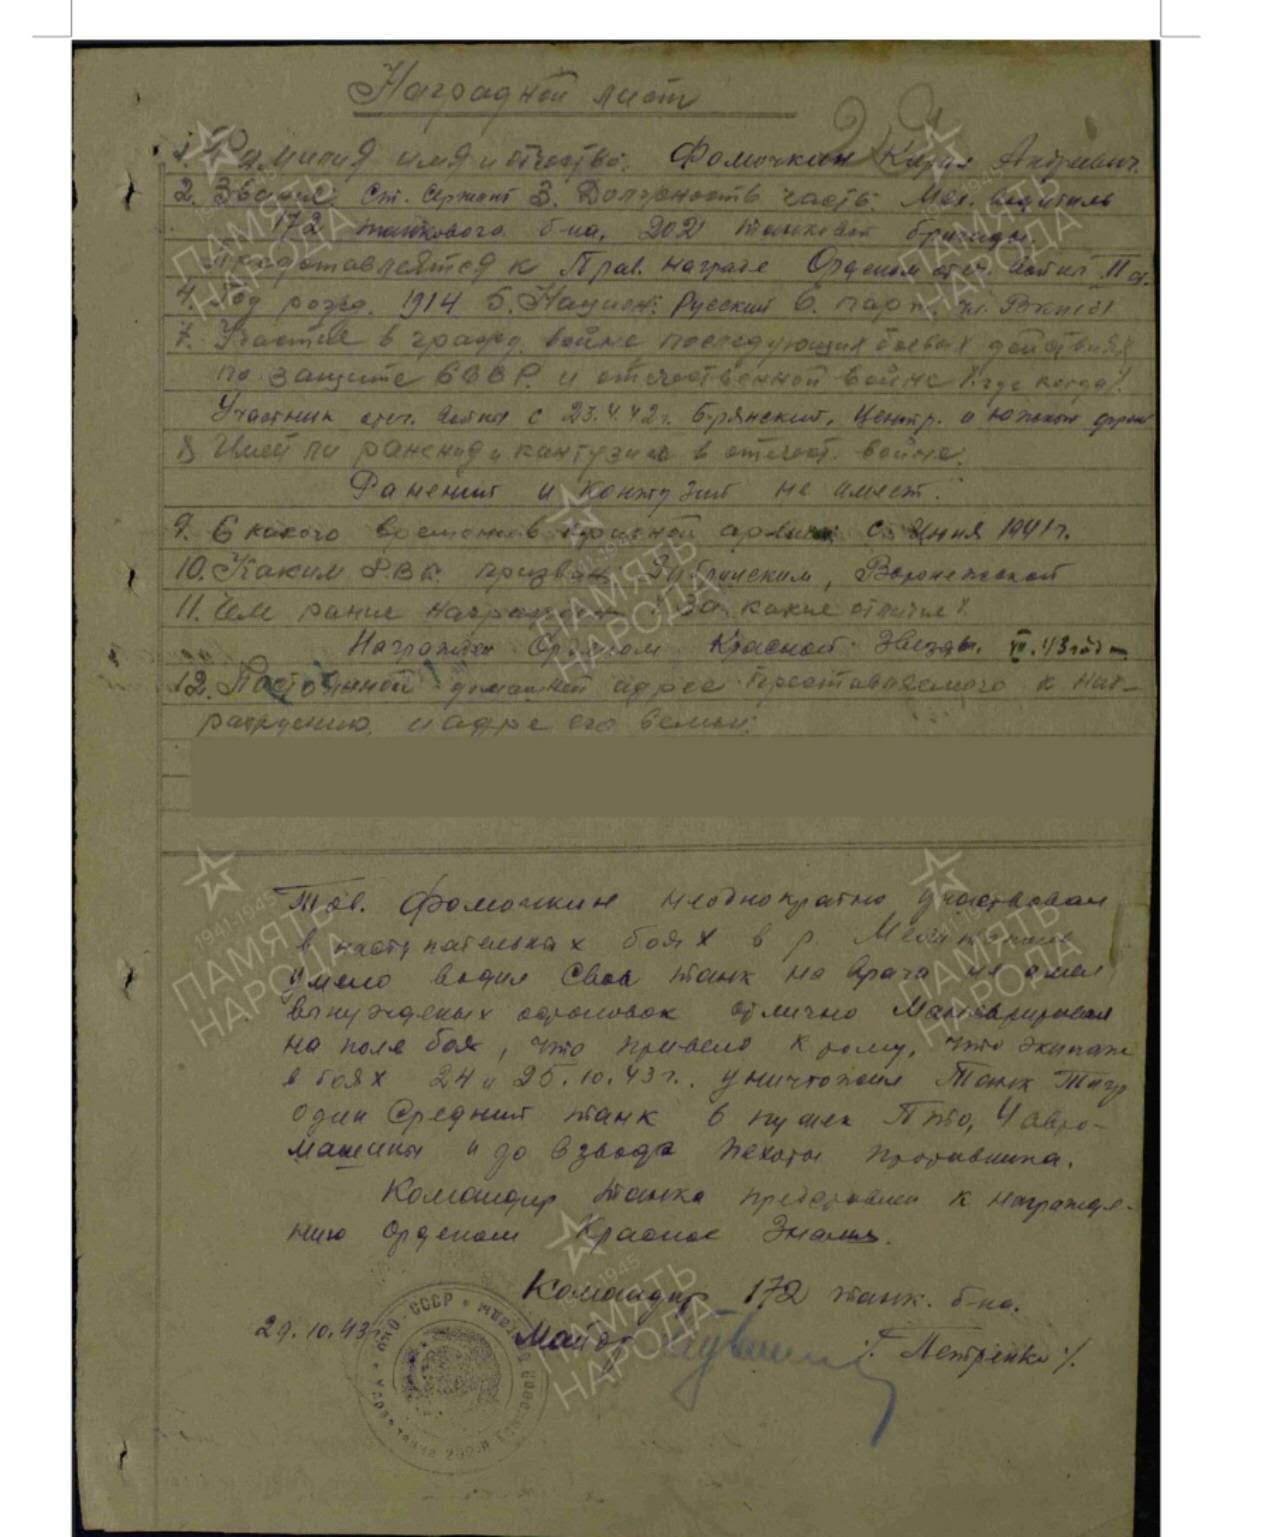 Наградной лист
29
1. Фамилия имя и отчество: Фомочкин Андреевич.
2. Звание Ст. Сержант 3. Должность часть: Мех. водитель
172 танкового б-на, 202 танковой бригады.
Представляется к Прав. награде Орденом отеч. войны II ст.
4. Год рожд. 1914 5. Национ: Русский 6. парт. чл. ВКП(б)
7. Участие в гражд. войне последующих боевых действиях
по защите СССР. и отечественной войне /. где когда /.
Участник отеч. войны с 23.4.42 г. Брянский, Центр. и Южном фрон
8 Имеет ли ранения и кантузии в отечест. войне:
Ранений и контузий не имеет.
9. С какого времени в красной армии с Июня 1941 г.
10. Каким Р.В.К. призван Воронежской
11. Чем ранее награжден /За какие отличия /.
Награжден Орденом Красной Звезды. 43
12. Постоянной домашней адрес представляемого к наг-
раждению. и адрес его семьи:
Тов. Фомочкин неоднократно участвовал
в наступательных боях в р.
умело водил свой танк на врага не имел
вынужденых остановок отлично Маневрировал
на поле боя, что привело к тому, что экипаж
в боях 24 и 25.10.43 г. уничтожил Танк Тигр
один Средний танк 6 пушек ПТО, 4 авто-
машины и до взвода пехоты противника.
Командир танка представлен к награжде-
нию орденом Красное Знамя.
Командир 172 танк. б-на.
29.10.43 г. Майор /. Петренко /.
НКО-СССР
1941-1945
ПАМЯТЬ
НАРОДА
1941-1945
ПАМЯТЬ
НАРОДА
1941-1945
ПАМЯТЬ
НАРОДА
1941-1945
ПАМЯТЬ
НАРОДА
1941-1945
ПАМЯТЬ
НАРОДА
1941-1945
ПАМЯТЬ
НАРОДА